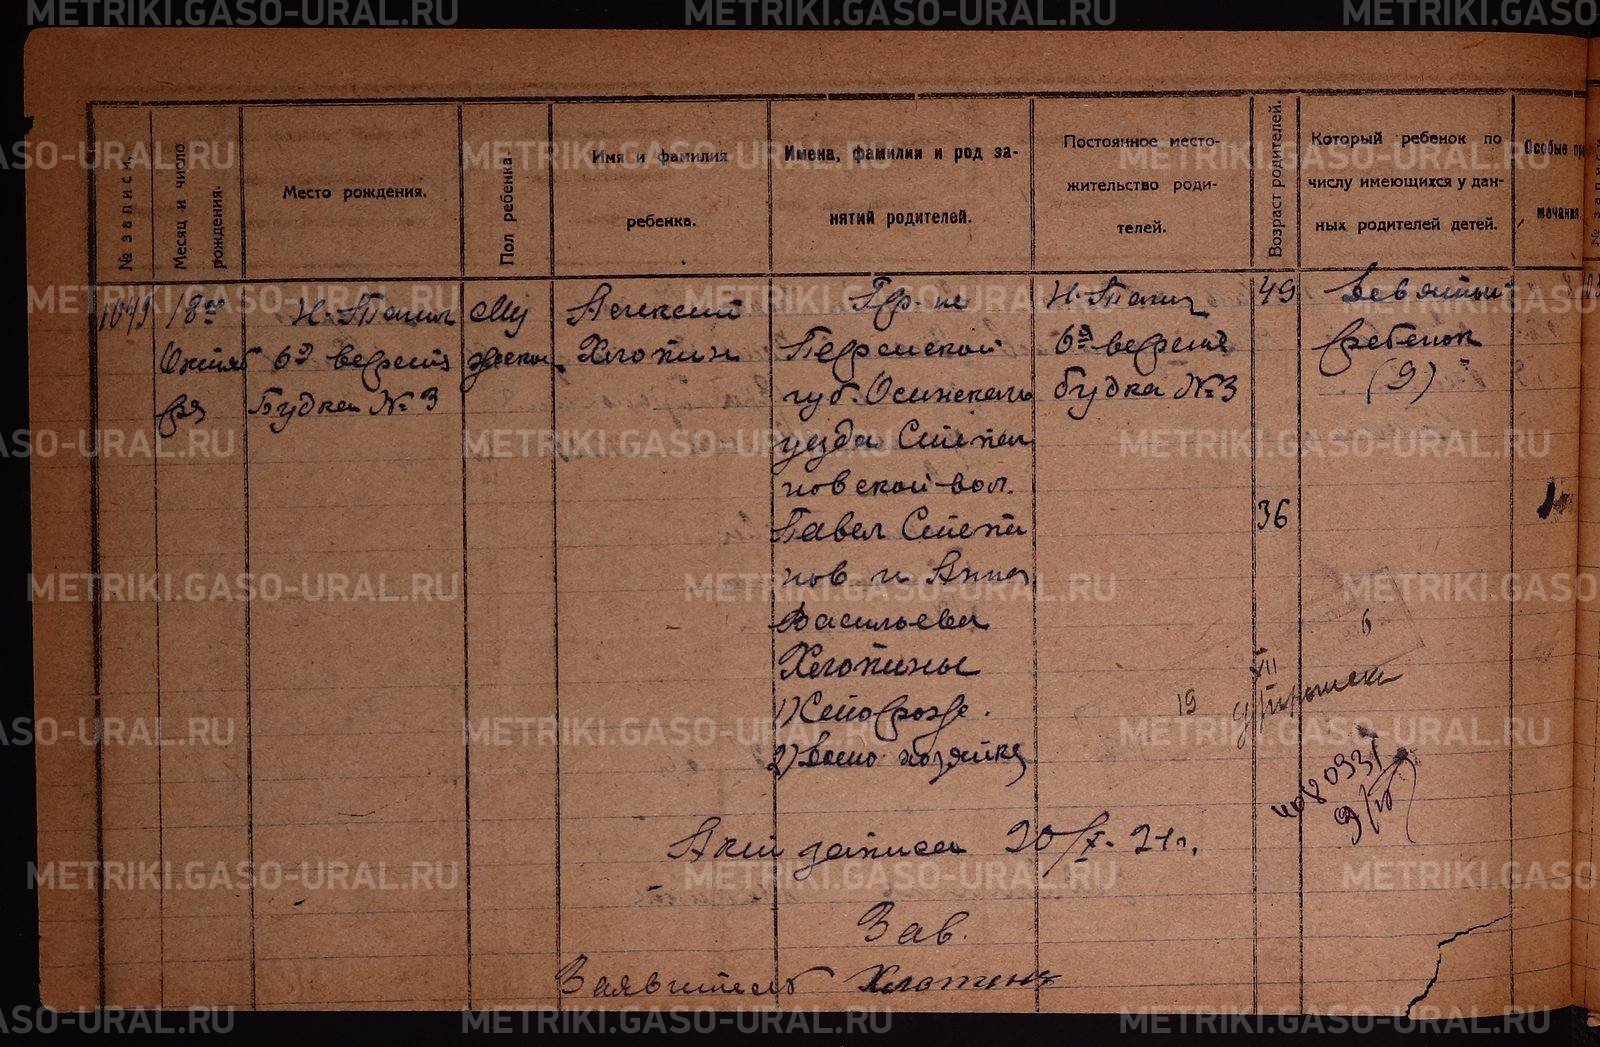 № записи.
Месяц и число рождения.
Место рождения.
Пол ребенка.
Имя и фамилия
ребенка.
Имена, фамилии и род за-
нятий родителей.
Постоянное место-
жительство роди-
телей.
Возраст родителей.
Который ребенок по
числу имеющихся у дан-
ных родителей детей.
Особые при
мечания.
№ записи
1049
18го
Октяб
ря
Н-Тагил
6я верста
Будка №3
Му
жской
Алексей
Хлопин
Гр-не
Пермской
губ. Осинского
уезда Степа
новской вол.
Павел Степа
нов и Анна
Васильева
Хлопины
1) Сторож.
2) Домохозяйка
Н-Тагил
6я верста
будка №3
49
36
Девятый
ребенок
(9)
6
19
VII
Акт записан 20/X-21г.
Зав.
Заявитель Хлопин
METRIKI.GASO-URAL.RU